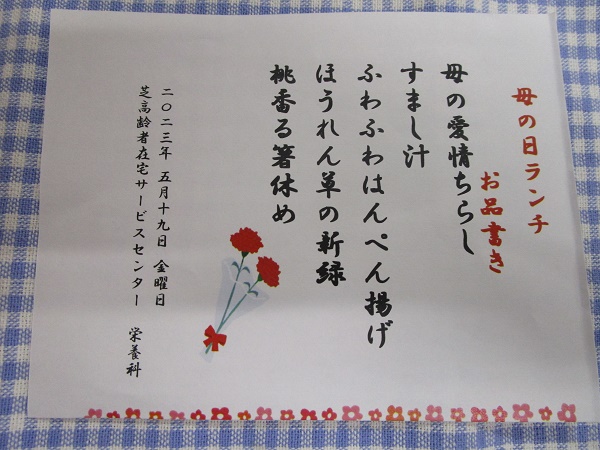 母の日ランチ
お品書き
母の愛情ちらし
すまし汁
ふわふわはんぺん揚げ
ほうれん草の新緑
桃香る箸休め
二〇二三年 五月十九日 金曜日
芝高齢者在宅サービスセンター 栄養科